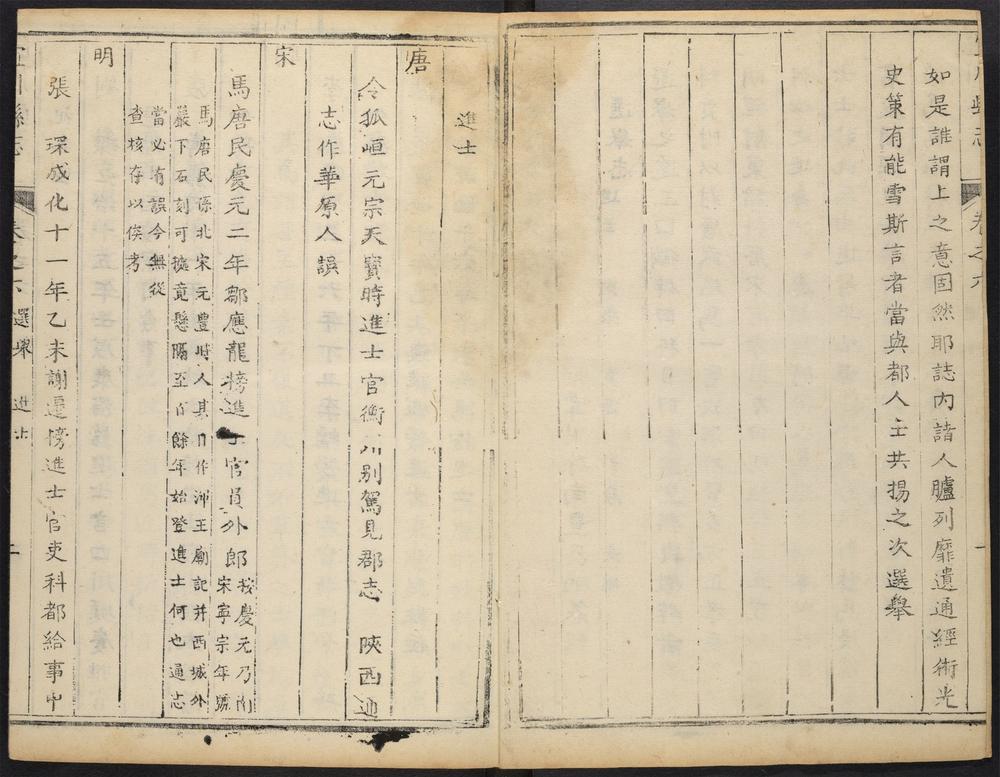 卷之六
如是誰謂上之意固然耶誌內諸人臚列靡遺通經術光
史策有能雪斯言者當與都人士共揚之次選舉
進士
唐
令狐峘元宗天寶時進士官衡州别駕見郡志 陝西通
志作華原人誤
宋
馬唐民慶元二年鄒應龍榜進士官員外郎按慶元乃南
宋寧宗年號
馬唐民係北宋元豐時人其所作沖王廟記并西城外
嚴下石刻可據竟懸隔至百餘年始登進士何也通志
當必有誤今無從
查核存以俟考
明
張 琛成化十一年乙未謝遷榜進士官吏科都給事中
宜川縣志 卷之六 選舉 進士 二